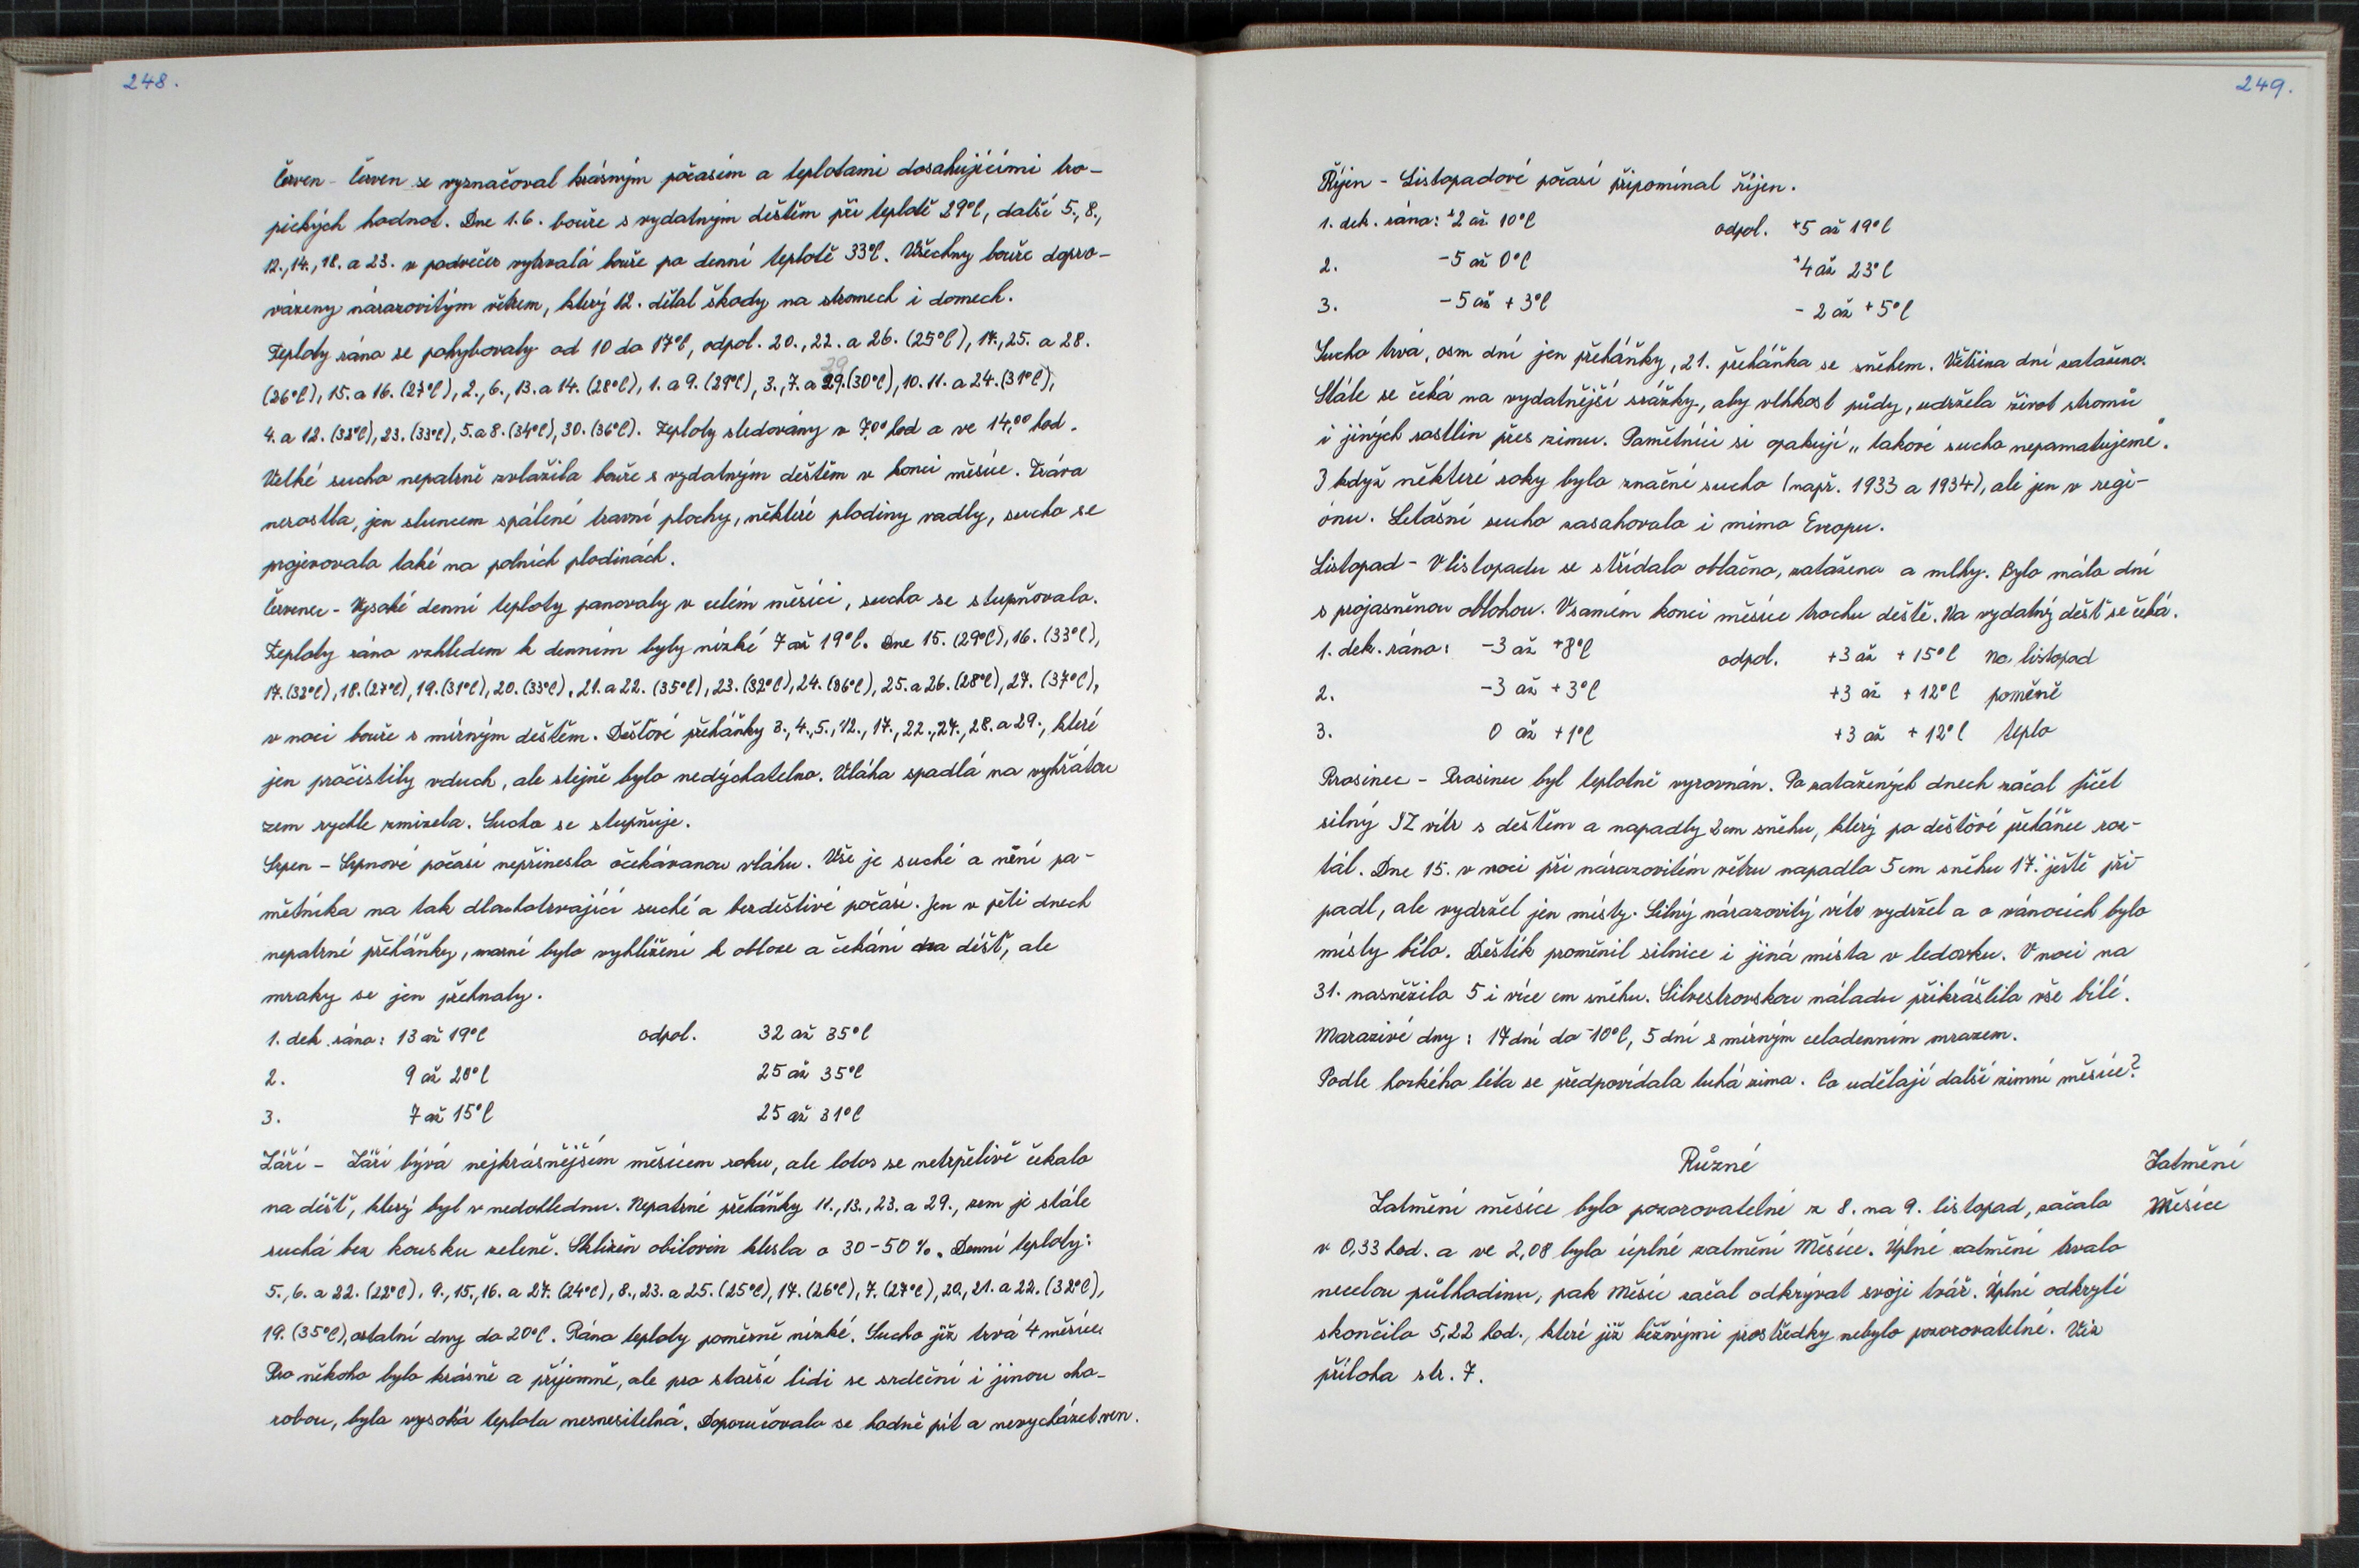 248.
Červen - Červen se vyznačoval krásným počasím a teplotami dosahujícími tro-
pických hodnot. Dne 1.6. bouře s vydatným deštěm při teplotě 29°C, další 5., 8.,
12., 14., 18. a 23. v podvečer vytrvalá bouře po denní teplotě 33°C. Všechny bouře dopro-
vázeny nárazovitým větrem, který 12. dělal škody na stromech i domech.
Teploty ráno se pohybovaly od 10 do 17°C, odpol. 20., 22. a 26. (25°C), 17., 25. a 28.
(26°C), 15. a 16. (27°C), 2., 6., 13. a 14. (28°C), 1. a 9. (29°C), 3., 7. a 29. (30°C), 10. 11. a 24. (31°C),
4. a 12. (32°C), 23. (33°C), 5. a 8. (34°C), 30. (36°C). Teploty sledovány v 7,00 hod a ve 14,00 hod.
Velké sucho nepatrně zvlažila bouře s vydatným deštěm v konci měsíce. Tráva
nerostla, jen sluncem spálené travní plochy, některé plodiny vadly, sucho se
projevovalo také na polních plodinách.
Červenec - Vysoké denní teploty panovaly v celém měsíci, sucho se stupňovalo.
Teploty ráno vzhledem k denním byly nízké 7 až 19°C. Dne 15. (29°C), 16. (33°C),
17. (32°C), 18. (27°C), 19. (31°C), 20. (33°C), 21. a 22. (35°C), 23. (32°C), 24. (36°C), 25. a 26. (28°C), 27. (37°C),
v noci bouře s mírným deštěm. Dešťové přeháňky 3., 4., 5., 12., 17., 22., 27., 28. a 29., které
jen pročistily vduch, ale stejně bylo nedýchatelno. Vláha spadlá na vyhřátou
zem rychle zmizela. Sucho se stupňuje.
Srpen - Srpnové počasí nepřineslo očekávanou vláhu. Vše je suché a není pa-
mětníka na tak dlouhotrvající suché a bezdeštivé počasí. Jen v pěti dnech
nepatrné přeháňky, marné bylo vyhlížení k obloze a čekání na déšť, ale
mraky se jen přehnaly.
1. dek. ráno: 13 až 19°C odpol. 32 až 35°C
2. 9 až 20°C 25 až 35°C
3. 7 až 15°C 25 až 31°C
Září - Září bývá nejkrásnějším měsícem roku, ale letos se netrpělivě čekalo
na déšť, který byl v nedohlednu. Nepatrné přeháňky 11., 13., 23. a 29., zem je stále
suchá bez kousku zeleně. Sklizeň obilovin klesla o 30-50%. Denní teploty:
5., 6. a 22. (22°C), 9., 15., 16. a 27. (24°C), 8., 23. a 25. (25°C), 17. (26°C), 7. (27°C), 20., 21. a 22. (32°C),
19. (35°C), ostatní dny do 20°C. Rána teploty poměrně nízké. Sucho již trvá 4 měsíce.
Pro někoho bylo krásně a příjemně, ale pro starší lidi se srdeční i jinou cho-
robou, byla vysoká teplota nesnesitelná. Doporučovalo se hodně pít a nevycházet ven.
249.
Říjen - Listopadové počasí připomínal říjen.
1. dek. ráno: +2 až 10°C odpol. +5 až 19°C
2. -5 až 0°C +4 až 23°C
3. -5 až +3°C -2 až +5°C
Sucho trvá, osm dní jen přeháňky, 21. přeháňka se sněhem. Většina dní zataženo.
Stále se čeká na vydatnější srážky, aby vlhkost půdy, udržela život stromů
i jiných rostlin přes zimu. Pamětníci si opakují „takové sucho nepamatujeme".
I když některé roky bylo značné sucho (např. 1933 a 1934), ale jen v regi-
ónu. Letošní sucho zasahovalo i mimo Evropu.
Listopad - V listopadu se střídalo oblačno, zataženo a mlhy. Bylo málo dní
s projasněnou oblohou. V samém konci měsíce trochu deště. Na vydatný déšť se čeká.
1. dek. ráno: -3 až +8°C odpol. +3 až +15°C Na listopad
2. -3 až +3°C +3 až +12°C poměně
3. 0 až +1°C +3 až +12°C teplo
Prosinec - Prosinec byl teplotně vyrovnán. Po zatažených dnech začal fičet
silný SZ vítr s deštěm a napadly 2 cm sněhu, který po dešťové přeháňce roz-
tál. Dne 15. v noci při nárazovitém větru napadlo 5 cm sněhu 17. ještě při-
padl, ale vydržel jen místy. Silný nárazovitý vítr vydržel a o vánocích bylo
místy bílo. Deštík proměnil silnice i jiná místa v ledovku. V noci na
31. nasněžilo 5 i více cm sněhu. Silvestrovskou náladu přikrášlilo vše bílé.
Marazivé dny: 17 dní do -10°C, 5 dní s mírným celodenním mrazem.
Podle horkého léta se předpovídala tuhá zima. Co udělají další zimní měsíce?
Různé
Zatmění
Měsíce
Zatmění měsíce bylo pozorovatelné z 8. na 9. listopad, začalo
v 0,33 hod. a ve 2,08 bylo úplné zatmění Měsíce. Úplné zatmění trvalo
necelou půlhodinu, pak Měsíc začal odkrývat svoji tvář. Úplné odkrytí
skončilo 5,22 hod., které již běžnými prostředky nebylo pozorovatelné. Viz
příloha str. 7.